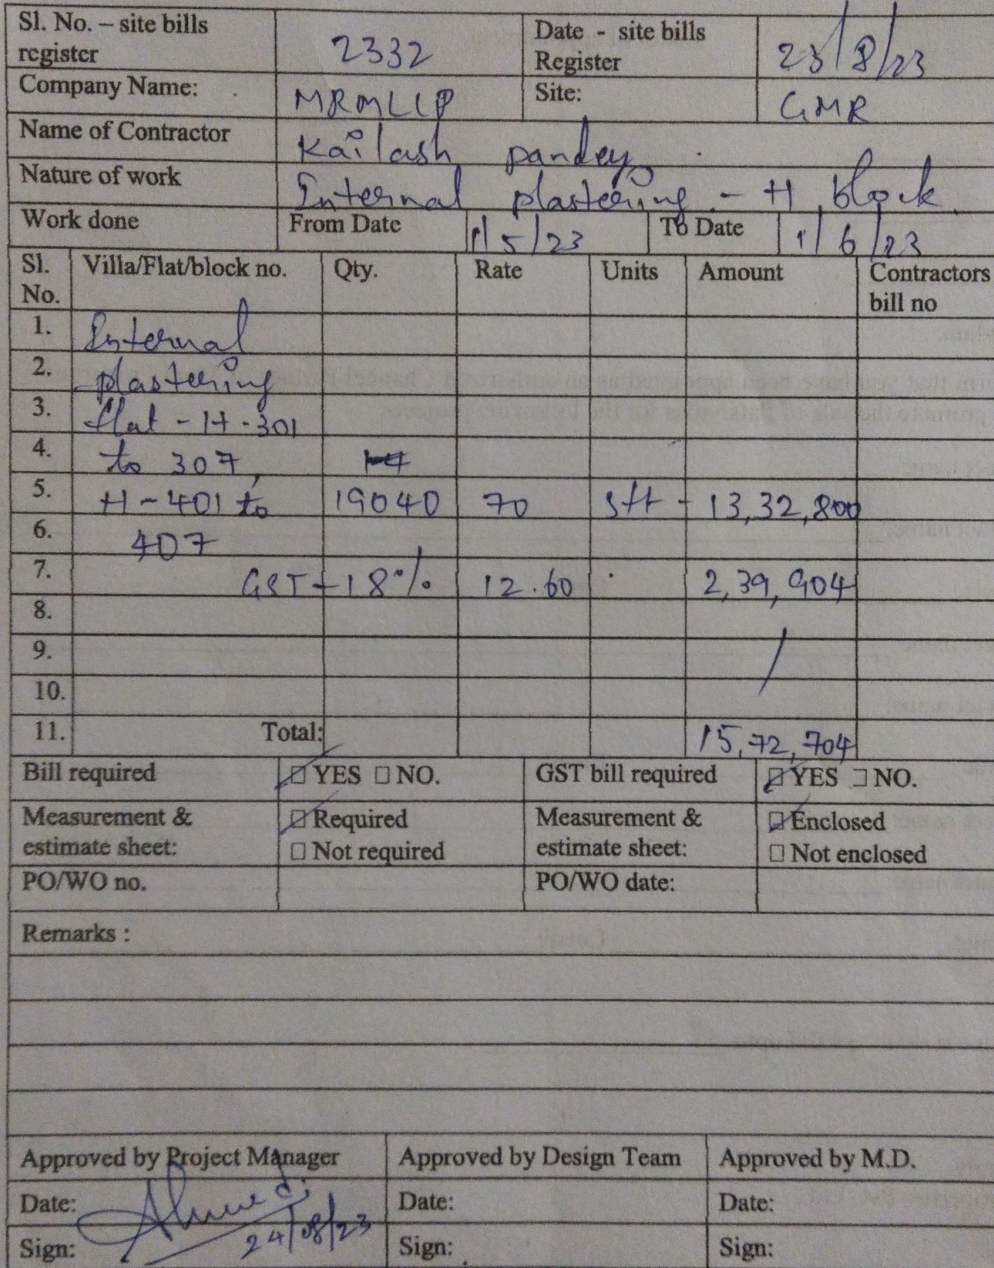 Sl. No. – site bills register 2332 Date - site bills Register 23/8/23
Company Name: MRMLLP Site: GMR
Name of Contractor Kailash pandey
Nature of work Internal plastering - H block
Work done From Date 1/5/23 To Date 1/6/23
Sl. No. Villa/Flat/block no. Qty. Rate Units Amount Contractors bill no
1. Internal
2. plastering
3. flat - H-301
4. to 307,
5. H-401 to 19040 70 sft - 13,32,800
6. 407
7. GST - 18% 12.60 2,39,904
8.
9.
10.
11. Total: 15,72,704
Bill required ☑ YES □ NO. GST bill required ☑ YES □ NO.
Measurement & estimate sheet: ☑ Required □ Not required Measurement & estimate sheet: ☑ Enclosed □ Not enclosed
PO/WO no. PO/WO date:
Remarks :
Approved by Project Manager Approved by Design Team Approved by M.D.
Date: 24/08/23 Date: Date:
Sign: Sign: Sign: